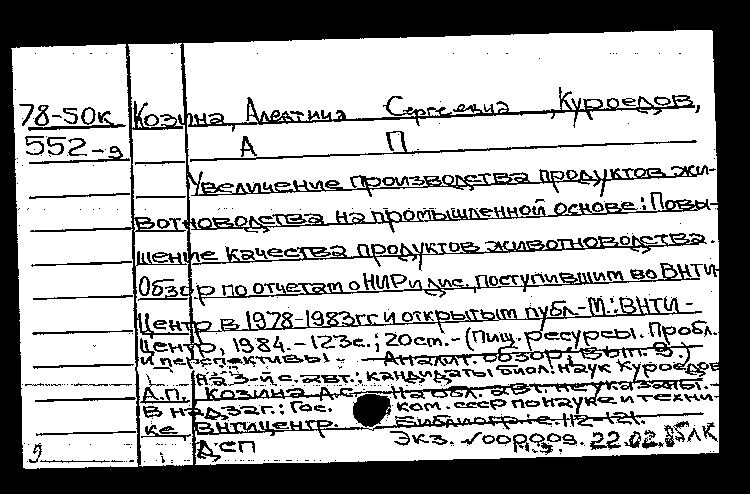 78-50к Козина, Алевтина Сергеевна, Куроедов,
552-9 А П
Увеличение производства продуктов жи-
вотноводства на промышленной основе: Повы-
шение качества продуктов животноводства.
Обзор по отчетам о НИР и дис., поступившим во ВНТИ-
Центр в 1978-1983гг. и открытым публ.-М.: ВНТИ-
Центр, 1984.-123с.; 20см.-(Пищ. ресурсы. Пробл.
и перспективы! - Аналит. обзор; Вып. 9.)
на 3-й с. авт.: кандидаты биол. наук Куроедов
А.П. Козина А.С. - На обл. авт. не указаны. -
В надзаг.: Гос. ком. ссср по науке и техни-
ке ВНТИцентр. Библиогр.: с. 112-121.
ДСП Экз. 000009. 22.02.85
9